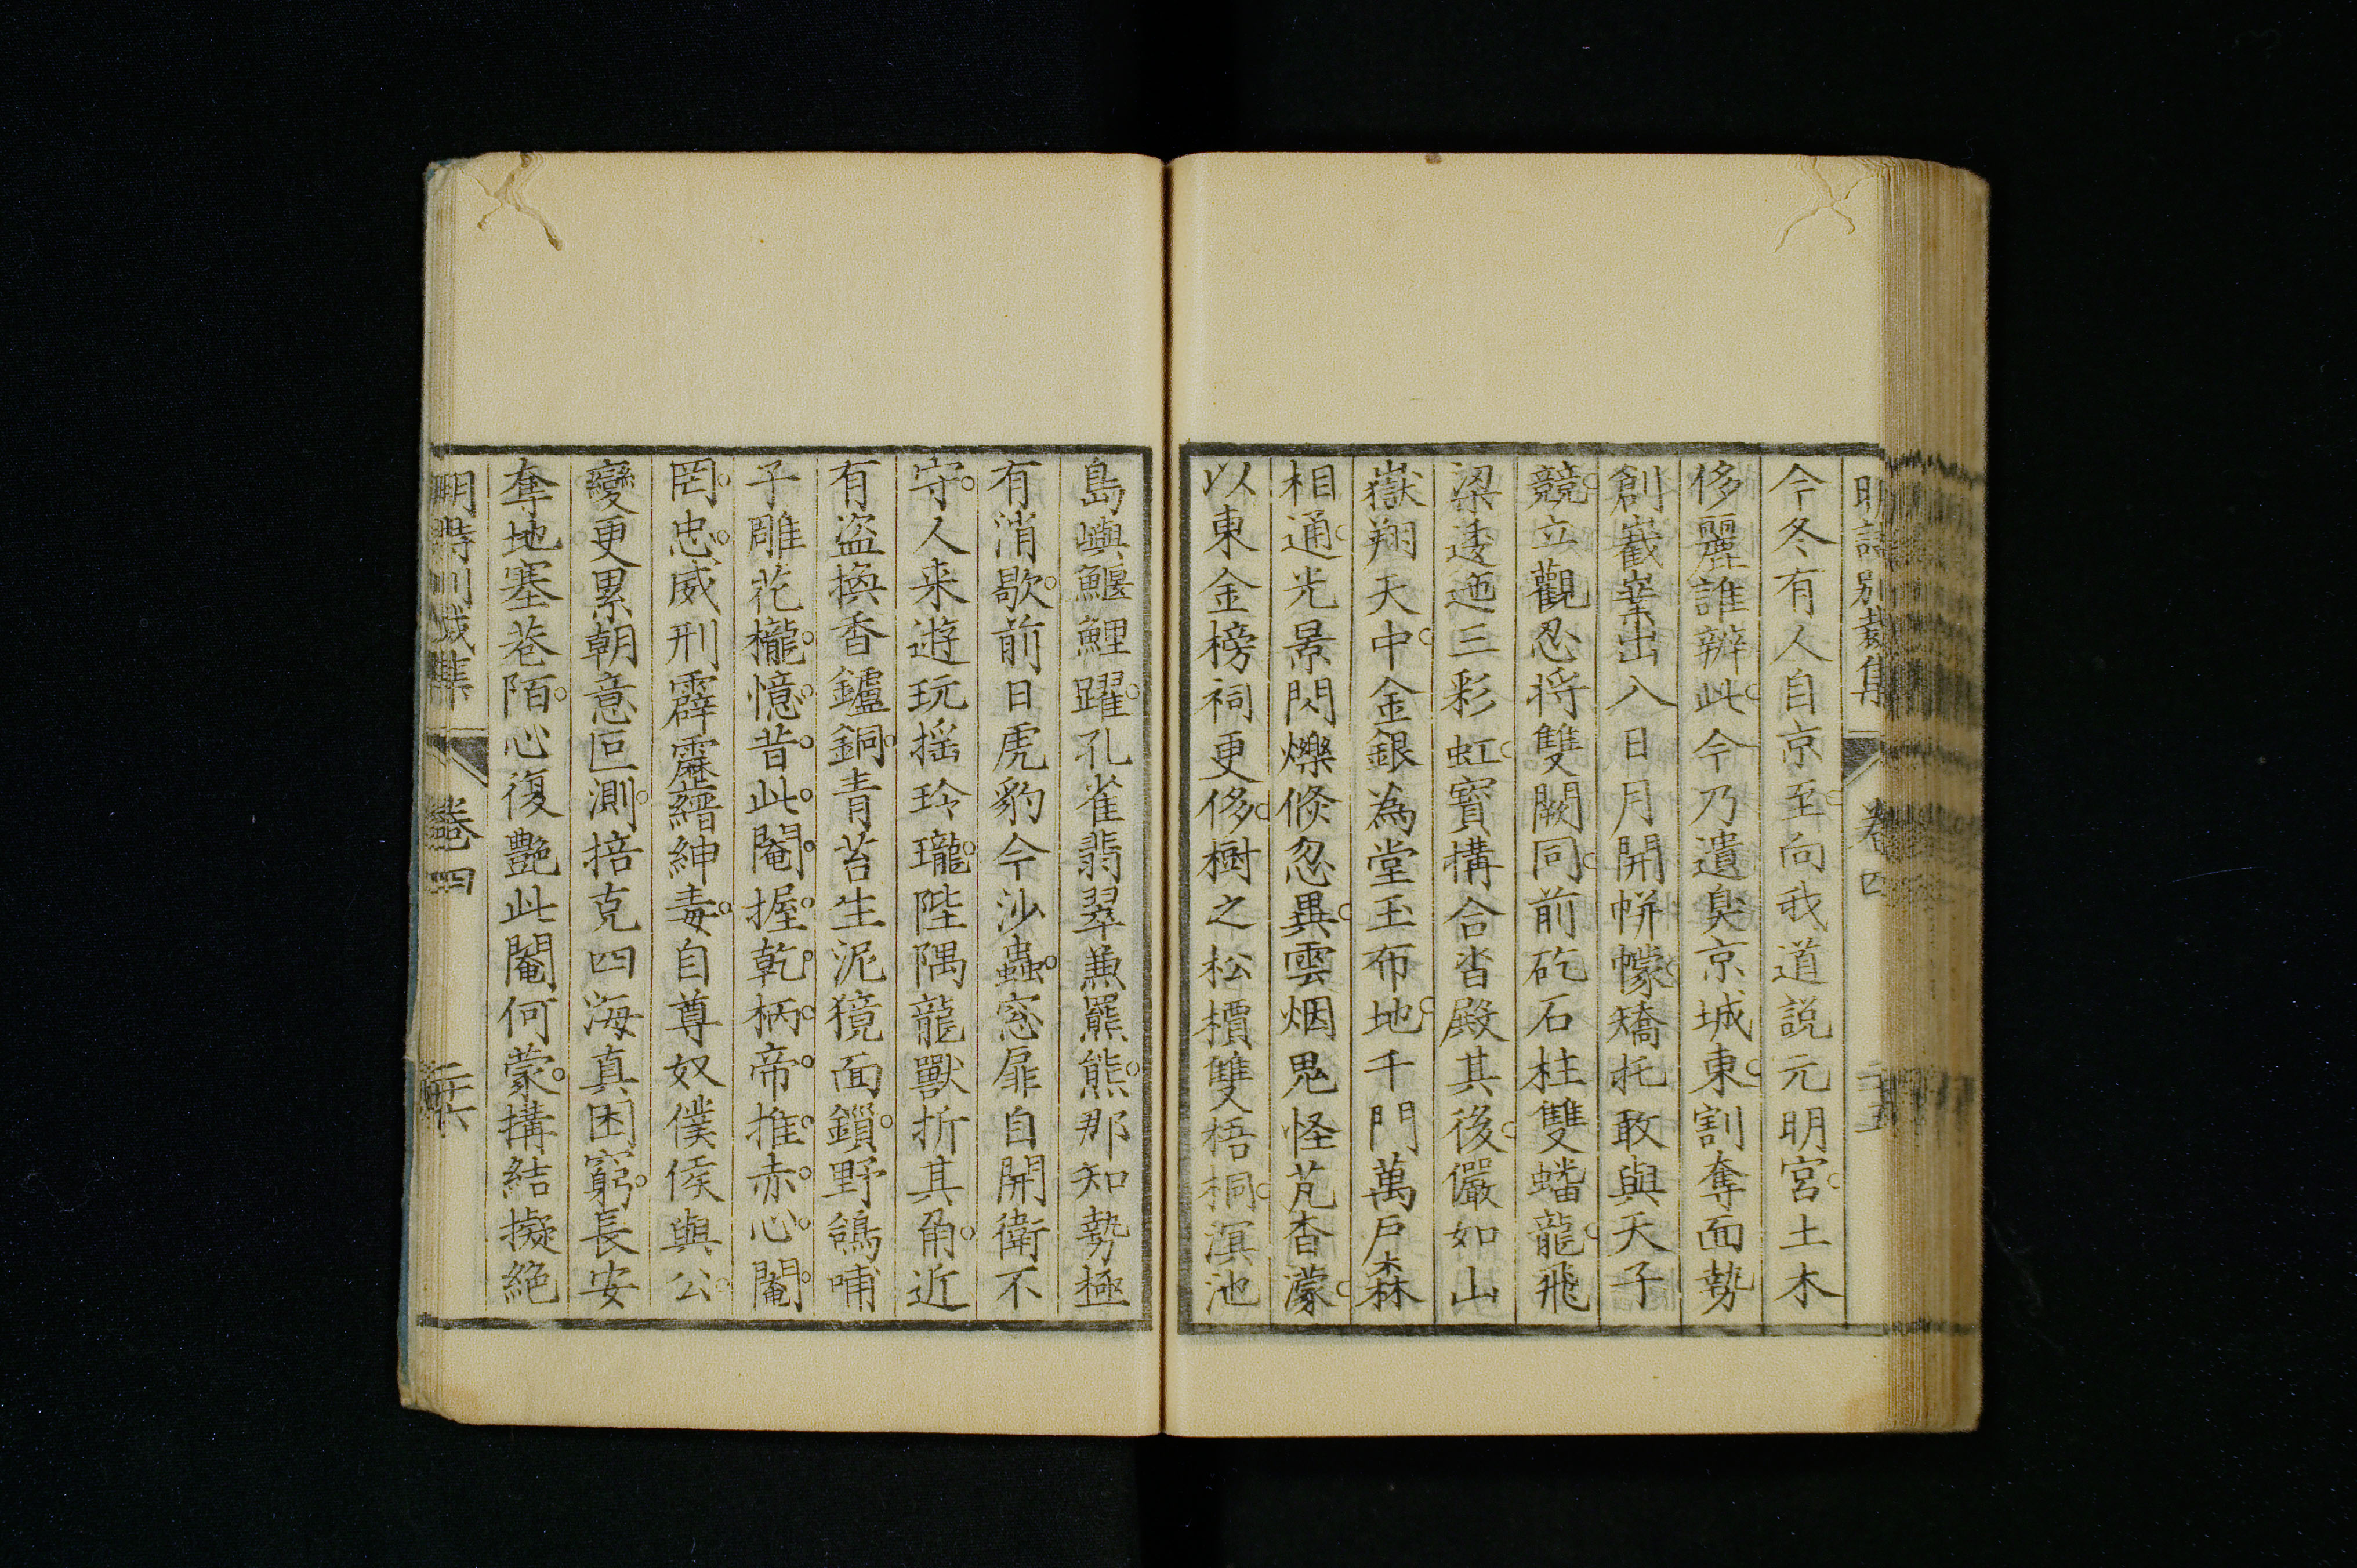 明詩別裁集 卷四 二十五
今冬有人自京至向我道説元明宮土木
侈麗誰辨此今乃遺臭京城東割奪面勢
創嶻嶪出入日月開帡幪矯托敢與天子
競立觀忍将雙闕同前矻石柱雙蟠龍飛
梁逶迤三彩虹寶構合沓殿其後儼如山
嶽翔天中金銀為堂玉布地千門萬戸森
相通光景閃爍倐忽異雲烟鬼怪芃杳濛
以東金榜祠更侈樹之松檟雙梧桐溟池
島嶼鰋鯉躍孔雀翡翠兼羆熊那知勢極
有消歇前日虎豹今沙蟲窓扉自開衛不
守人来遊玩揺玲瓏陛隅龍獸折其角近
有盜換香鑪銅青苔生泥獍面鎻野鴿哺
子雕花櫳憶昔此閹握乾柄帝推赤心閹
罔忠威刑霹靂縉紳毒自尊奴僕侯與公
變更累朝意叵測掊克四海真困窮長安
奪地塞巷陌心復艷此閹何蒙搆結擬絶
明詩別裁集 卷四 二十六